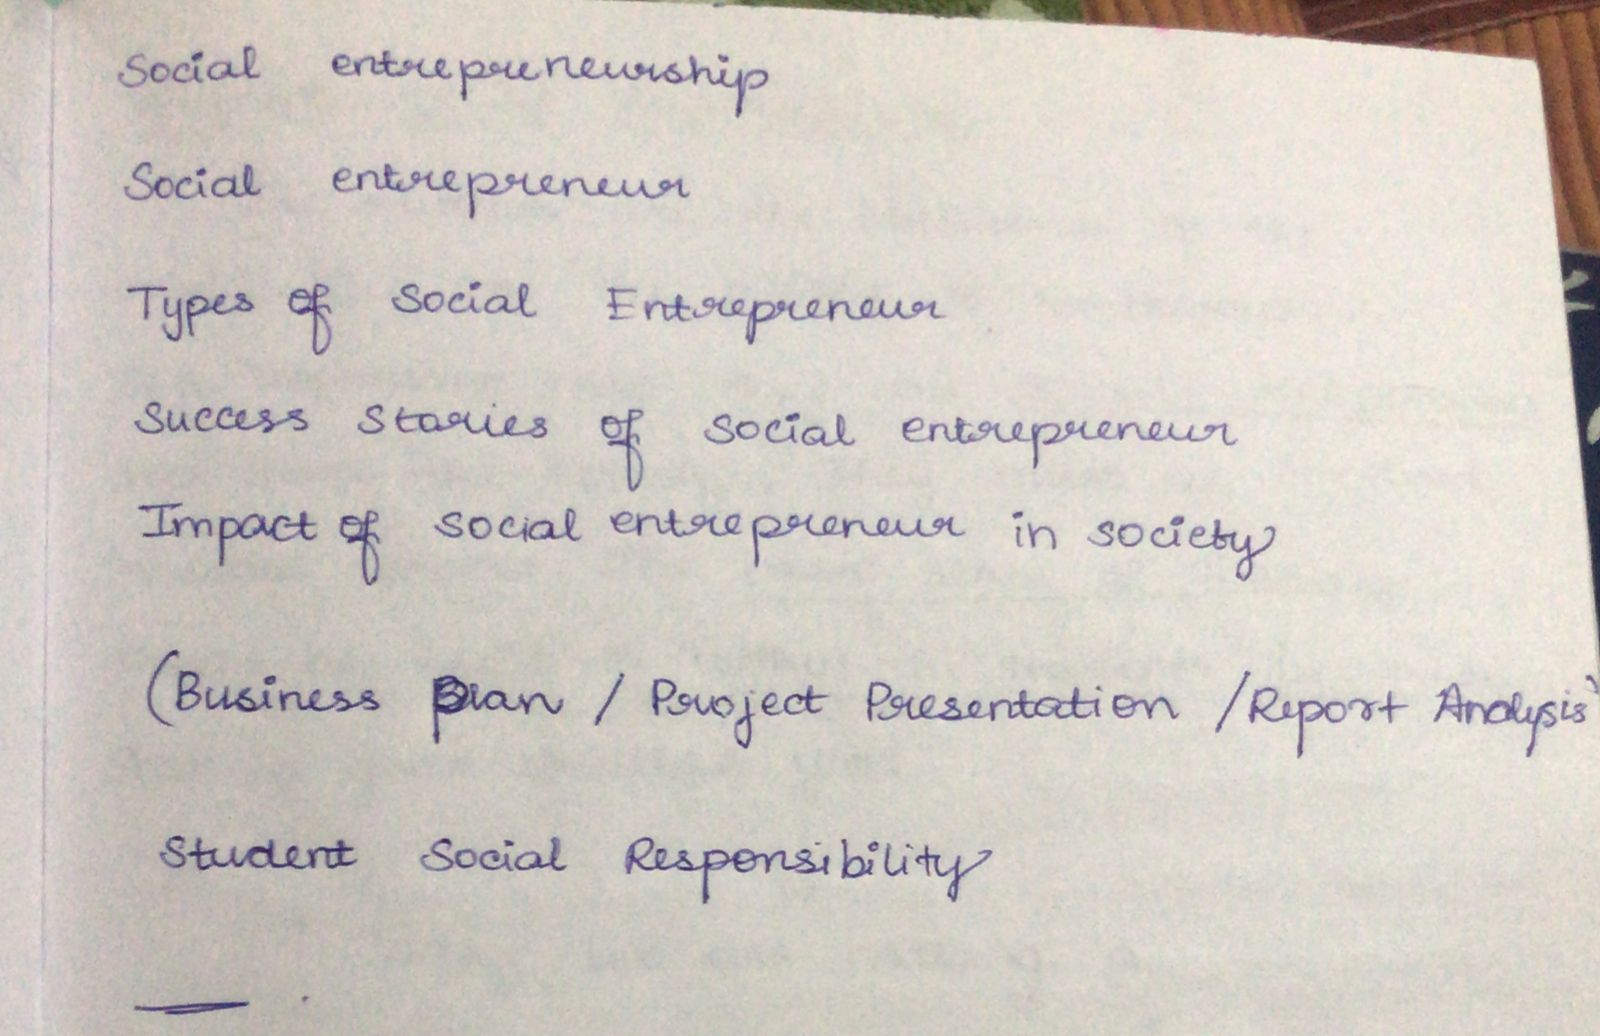 Social entrepreneurship
Social entrepreneur
Types of Social Entrepreneur
Success Stories of Social entrepreneur
Impact of social entrepreneur in society
(Business Plan / Project Presentation / Report Analysis)
Student Social Responsibility